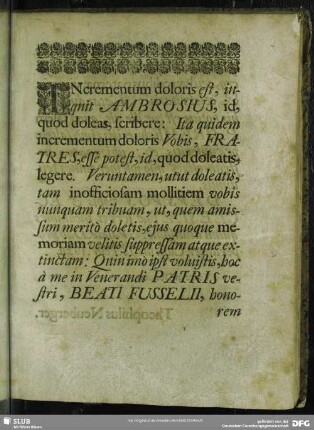 INcrementum doloris est, in-
quit AMBROSIUS, id,
quod doleas, scribere: Ita quidem
incrementum doloris Vobis, FRA-
TRES, esse potest, id, quod doleatis,
legere. Veruntamen, utut doleatis,
tam inofficiosam mollitiem vobis
nunquam tribuam, ut, quem amis-
sum meritò doletis, ejus quoque me-
moriam velitis suppressam atque ex-
tinctam: Quin imò ipsi voluistis, hoc
à me in Venerandi PATRIS ve-
stri, BEATI FUSSELII, hono-
rem
Theophilus Neuberger.
SLUB
DFG